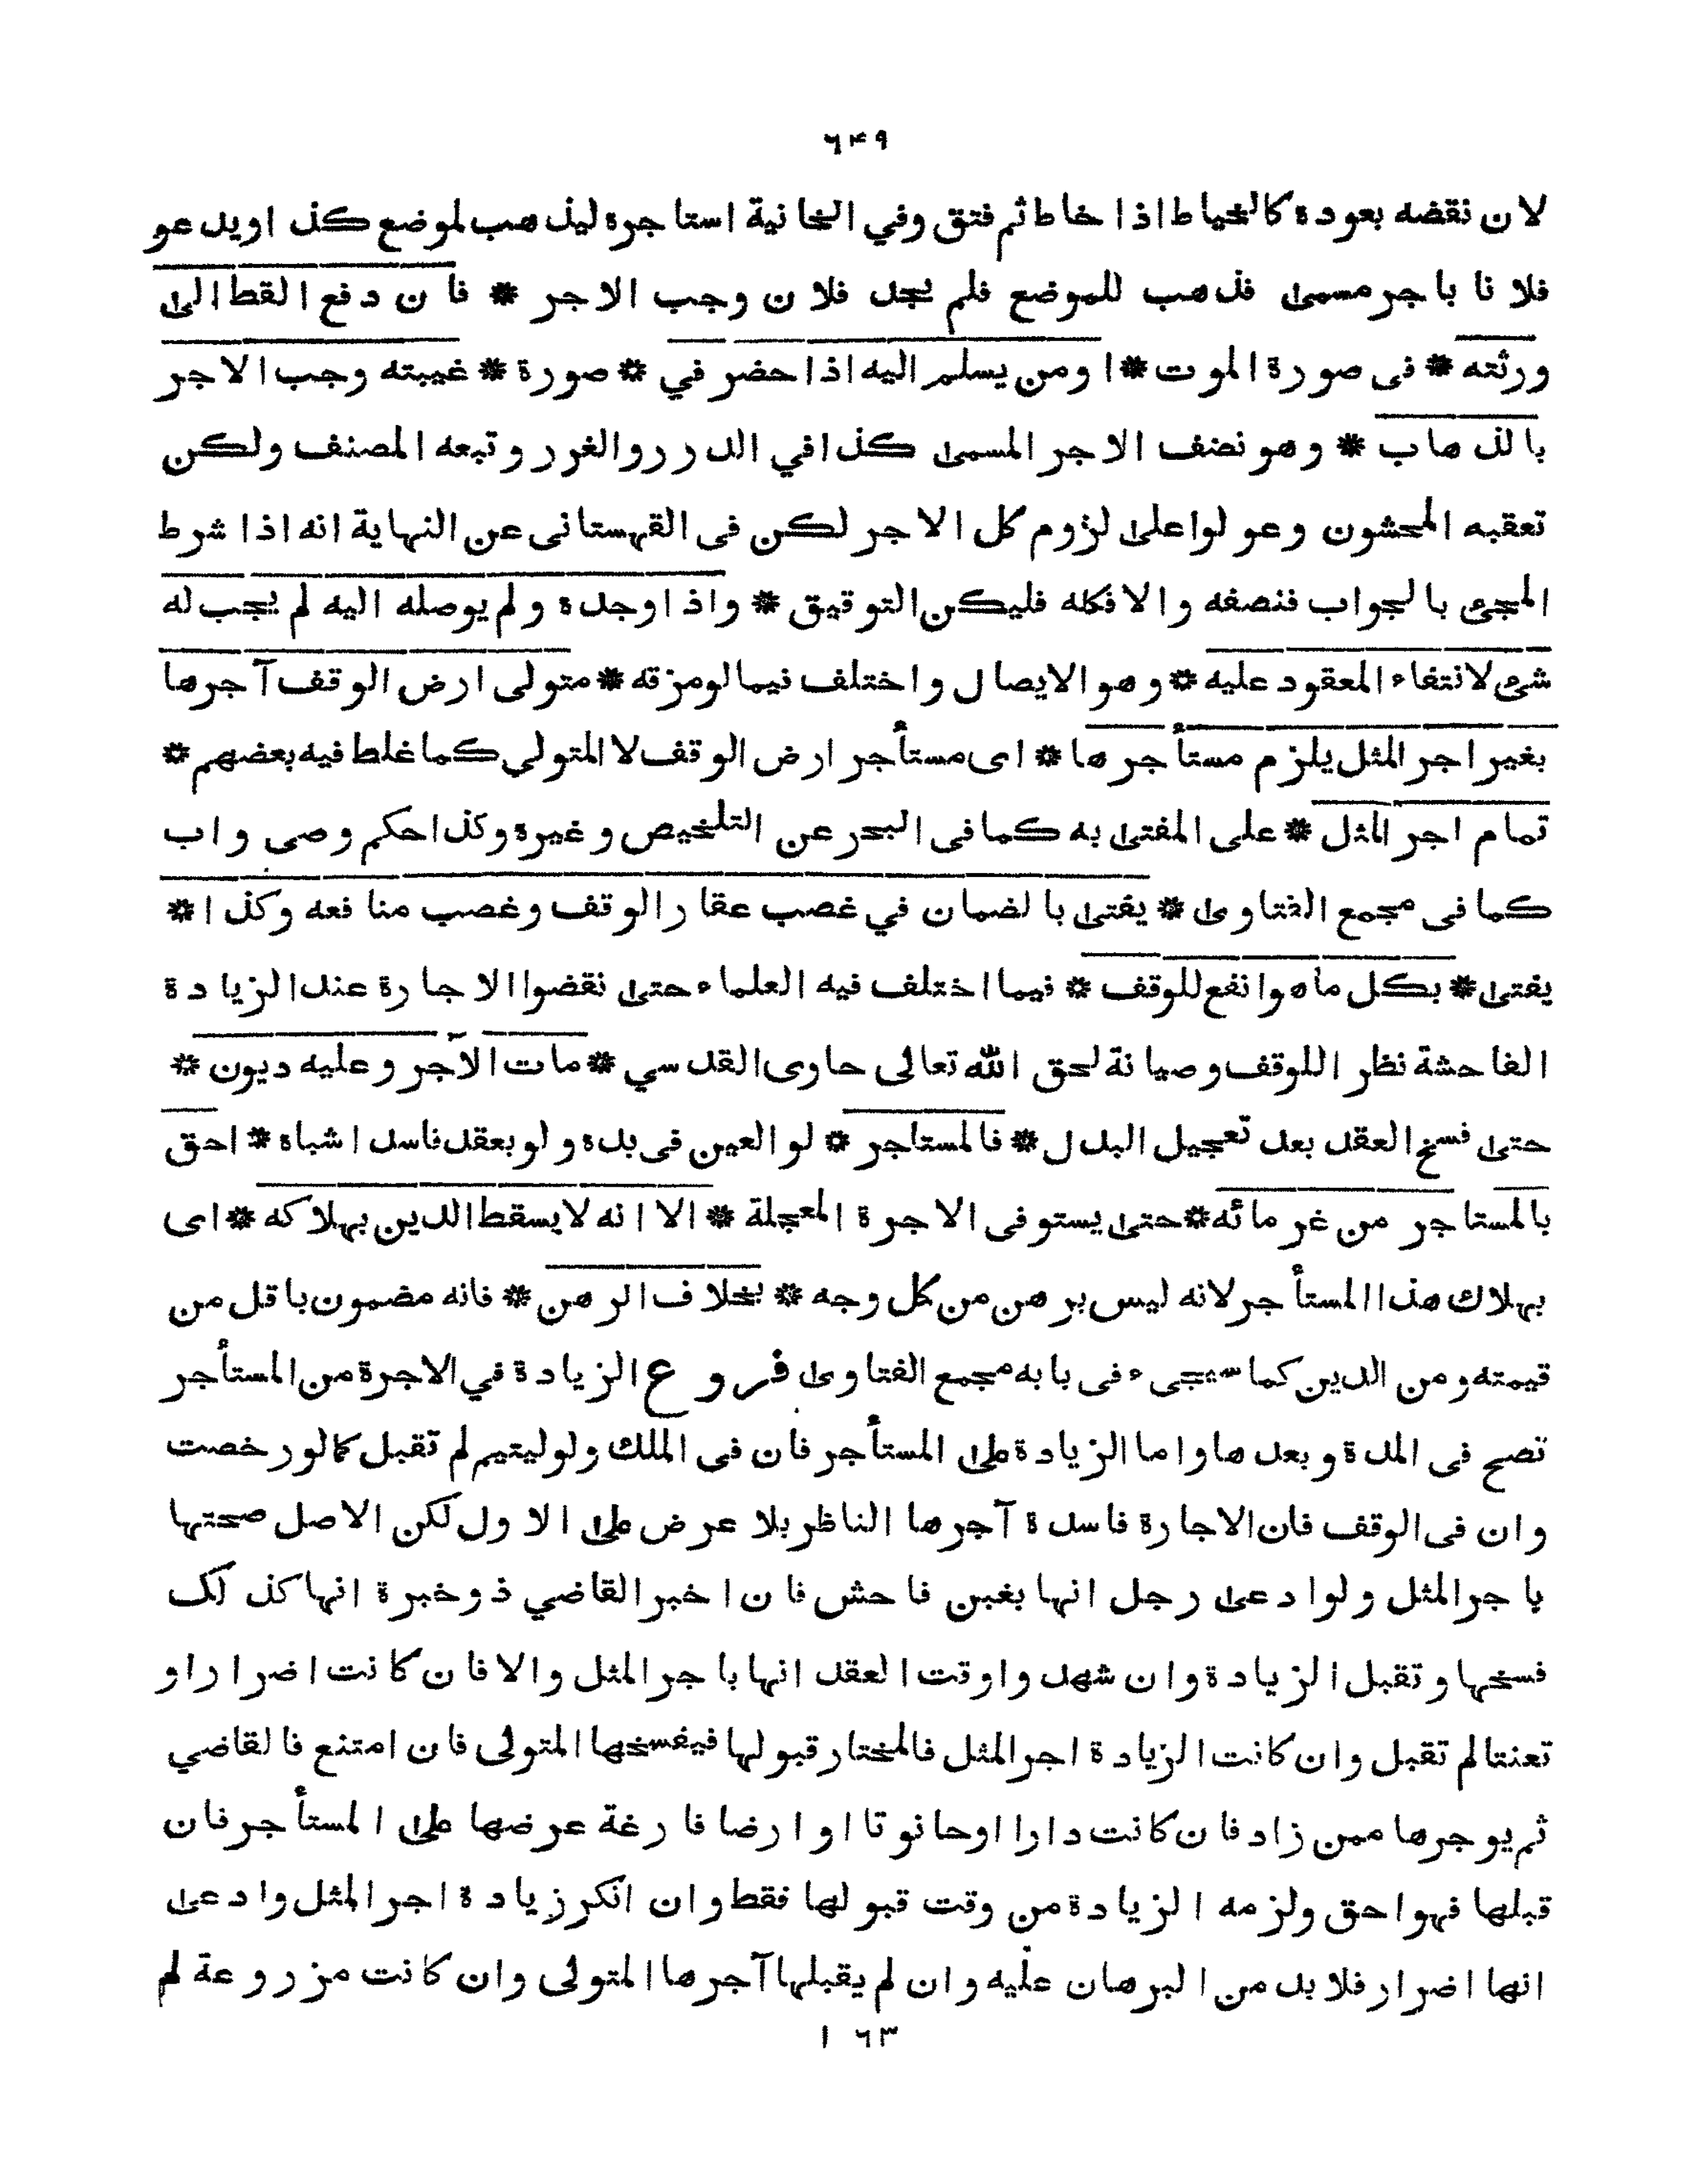 ٦٤٩
لان نقضه بعوده كالخياط اذا خاط ثم فتق وفي الخانية استاجره ليذهب لموضع كذا اويدعو
فلانا باجر مسمى فذهب للموضع فلم يجد فلان وجب الاجر * فان دفع القط الى
ورثته * فى صورة الموت * اومن يسلم اليه اذا حضر في * صورة * غيبته وجب الاجر
بالذهاب * وهو نصف الاجر المسمى كذا في الدرر والغرر وتبعه المصنف ولكن
تعقبه المحشون وعولوا على لزوم كل الاجر لكن فى القهستانى عن النهاية انه اذا شرط
المجئ بالجواب فنصفه والا فكله فليكن التوفيق * واذا وجده ولم يوصله اليه لم يجب له
شئ لانتفاء المعقود عليه * وهو الايصال واختلف فيما لو مزقه * متولى ارض الوقف آجرها
بغير اجر المثل يلزم مستأجرها * اى مستأجر ارض الوقف لا المتولي كما غلط فيه بعضهم *
تمام اجر المثل * على المفتى به كما فى البحر عن التلخيص وغيره وكذا حكم وصى واب
كما فى مجمع الفتاوى * يفتى بالضمان في غصب عقار الوقف وغصب منافعه وكذا *
يفتى * بكل ما هو انفع للوقف * فيما اختلف فيه العلماء حتى نقضوا الاجارة عند الزيادة
الفاحشة نظرا للوقف وصيانة لحق الله تعالى حاوى القدسي * مات الآجر وعليه ديون *
حتى فسخ العقد بعد تعجيل البدل * فالمستاجر * لو العين فى يده ولو بعقد فاسد اشباه * احق
بالمستاجر من غرمائه * حتى يستوفى الاجرة المعجلة * الا انه لا يسقط الدين بهلاكه * اى
بهلاك هذا المستأجر لانه ليس برهن من كل وجه * بخلاف الرهن * فانه مضمون باقل من
قيمته ومن الدين كما سيجىء فى بابه مجمع الفتاوى فروع الزيادة في الاجرة من المستأجر
تصح فى المدة وبعدها واما الزيادة على المستأجر فان فى الملك ولو ليتيم لم تقبل كما لو رخصت
وان فى الوقف فان الاجارة فاسدة آجرها الناظر بلا عرض على الاول لكن الاصل صحتها
باجر المثل ولو ادعى رجل انها بغبن فاحش فان اخبر القاضي ذو خبرة انها كذلك
فسخها وتقبل الزيادة وان شهدوا وقت العقد انها باجر المثل والا فان كانت اضرارا و
تعنتا لم تقبل وان كانت الزيادة اجر المثل فالمختار قبولها فيفسخها المتولى فان امتنع فالقاضي
ثم يوجرها ممن زاد فان كانت دارا او حانوتا او ارضا فارغة عرضها على المستأجر فان
قبلها فهو احق ولزمه الزيادة من وقت قبولها فقط وان انكر زيادة اجر المثل وادعى
انها اضرار فلابد من البرهان عليه وان لم يقبلها آجرها المتولى وان كانت مزروعة لم
١ ٦٣